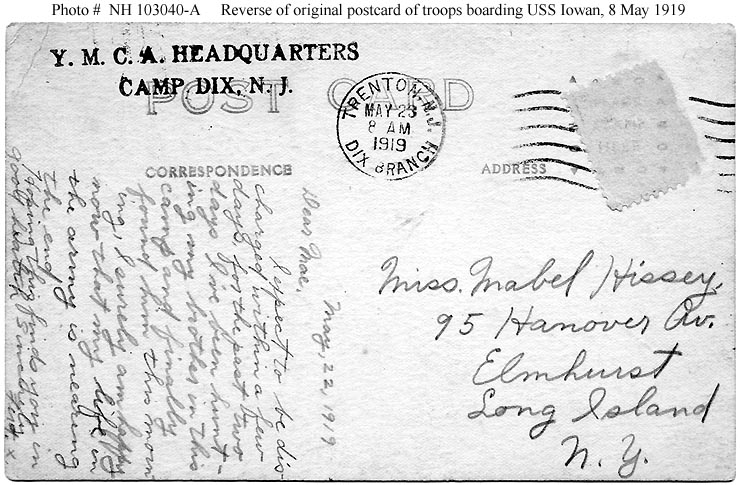 Photo # NH 103040-A Reverse of original postcard of troops boarding USS Iowan, 8 May 1919
Y. M. C. A. HEADQUARTERS
CAMP DIX, N. J.
POST CARD
TRENTON, N.J.
MAY 23
8 AM
1919
DIX BRANCH
CORRESPONDENCE
ADDRESS
May, 22, 1919
Dear Mae,
I expect to be dis-
charged within a few
days, for the past two
days I've been hunt-
ing my brother in this
camp and finally
found him this morn-
ing, I surely am happy
now that my life in
the army is nearing
the end.
Hoping this finds you in
good health Sincerely
Miss. Mabel Hissey,
95 Hanover Av.
Elmhurst
Long Island
N. Y.